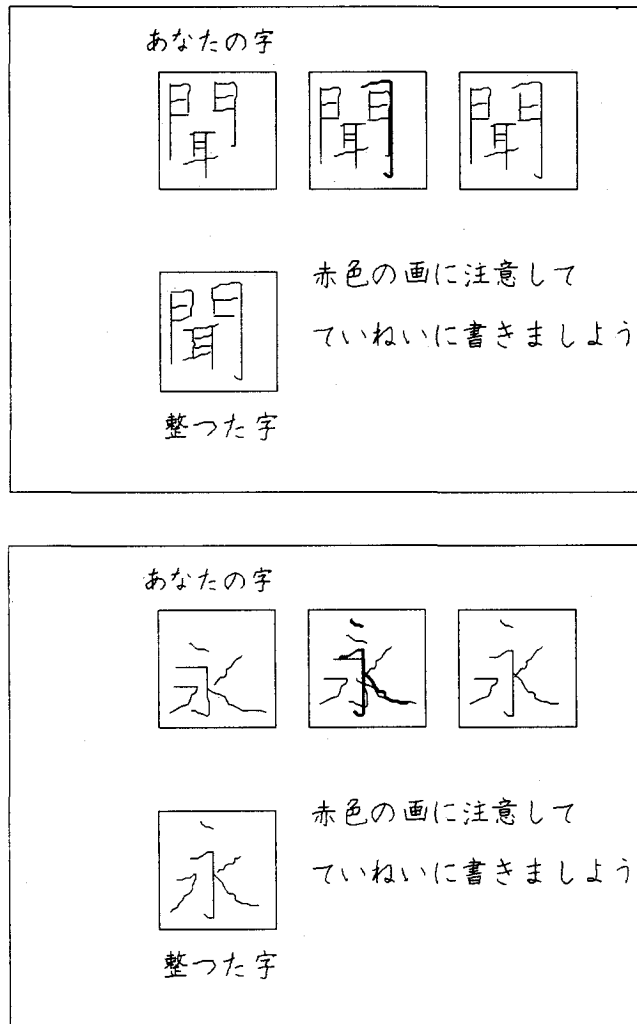 あなたの字
聞 聞 聞
聞
赤色の画に注意して
ていねいに書きましよう
整つた字
あなたの字
永 永 永
永
赤色の画に注意して
ていねいに書きましよう
整つた字